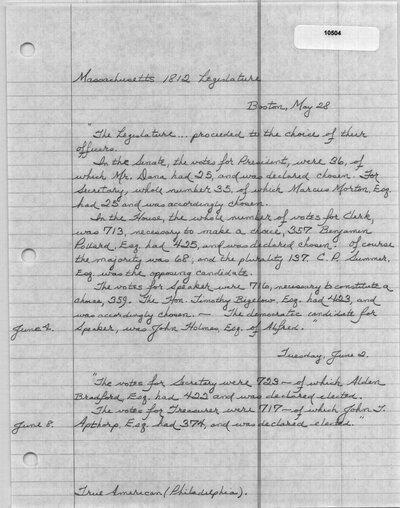 10504
Massachusetts 1812 Legislature
Boston, May 28
"The Legislature... proceeded to the choice of their
officers.
In the Senate, the votes for President, were 36, of
which Mr. Dana had 25, and was declared chosen. For
Secretary, whole number 33, of which Marcus Morton, Esq.
had 25 and was accordingly chosen.
In the House, the whole number of votes for Clerk,
was 713, necessary to make a choice, 357 Benjamin
Pollard, Esq. had 425, and was declared chosen. Of course
the majority was 68, and the plurality 137. C. P. Sumner,
Esq. was the opposing candidate.
The votes for Speaker were 716, necessary to constitute a
choice, 359. The Hon. Timothy Bigelow, Esq. had 423, and
was accordingly chosen. — The democratic candidate for
June 2. Speaker, was John Holmes, Esq. of Alfred."
Tuesday, June 2.
"The votes for Secretary were 723 — of which Alden
Bradford, Esq. had 422 and was declared elected.
The votes for Treasurer were 717 — of which John T.
June 8. Apthorp, Esq. had 374, and was declared elected."
True American (Philadelphia).